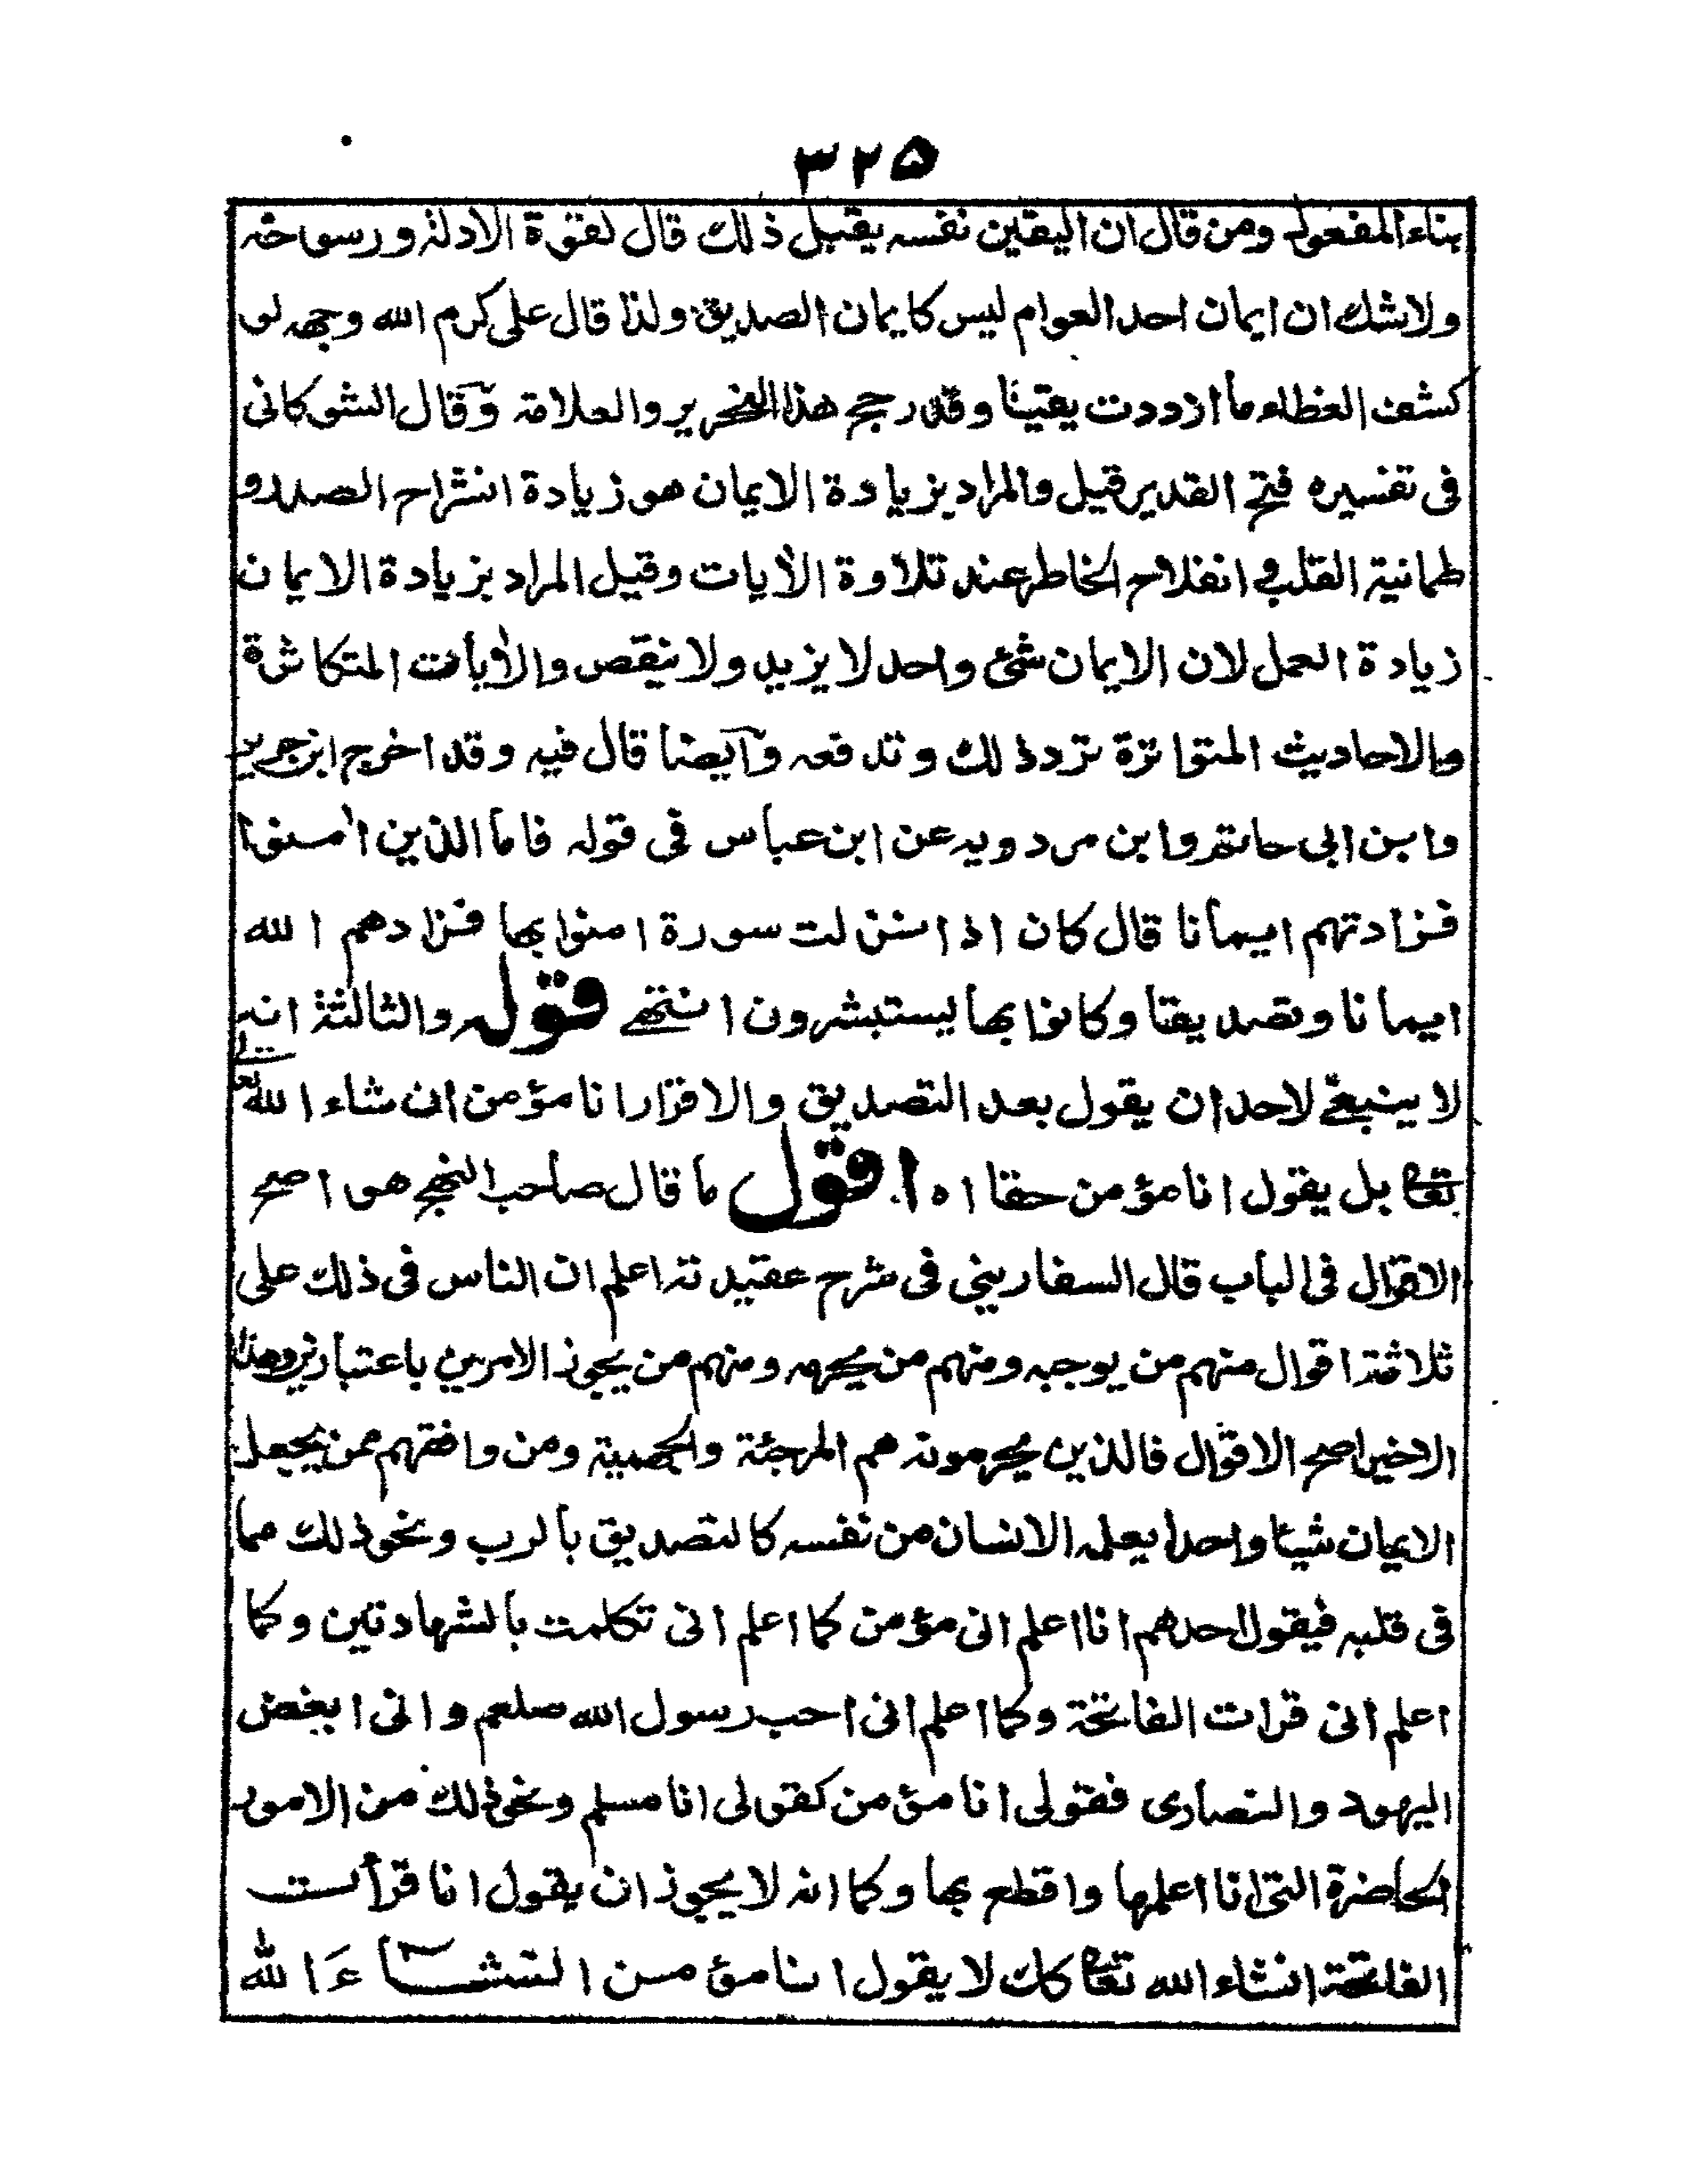 ۳۲۵
بناء المفعول ومن قال ان اليقين نفسه يقبل ذلك قال لقوة الادلة ورسوخه
ولا شك ان ايمان احد العوام ليس كايمان الصديق ولذا قال على كرم الله وجهه لو
كشف الغطاء ما ازددت يقينا وقد رجح هذا النحرير والعلامة وقال الشوكانى
فى تفسيره فتح القدير قيل والمراد بزيادة الايمان هو زيادة انشراح الصدر و
طمانية القلب و انفلاح الخاطر عند تلاوة الأيات وقيل المراد بزيادة الايمان
زيادة العمل لان الايمان شئ واحد لا يزيد ولا ينقص والأيات المتكاثرة
والاحاديث المتواترة ترد ذلك و تدفعه وآيضا قال فيه وقد اخرج ابن جرير
وابن ابى حاتم وابن مردويه عن ابن عباس فى قوله فاما الذين امنوا
فزادتهم ايمانا قال كان اذا انزلت سورة امنوا بها فزادهم الله
ايمانا وتصديقا وكانوا بها يستبشرون انتهى قوله والثالثة انه
لا ينبغى لاحد ان يقول بعد التصديق والاقرار انا مؤمن ان شاء الله
تعالى بل يقول انا مؤمن حقا اه اقول ما قال صاحب النهج هو اصح
الاقوال فى الباب قال السفارينى فى شرح عقيدته اعلم ان الناس فى ذلك على
ثلاثة اقوال منهم من يوجبه ومنهم من يحرمه ومنهم من يجوز الامرين باعتبارين وهذا
الاخير اصح الاقوال فالذين يحرمونه هم المرجئة والجهمية ومن وافقهم ممن يجعل
الايمان شيئا واحدا يعلمه الانسان من نفسه كالتصديق بالرب ونحو ذلك مما
فى قلبه فيقول احدهم انا اعلم انى مؤمن كما اعلم انى تكلمت بالشهادتين وكما
اعلم انى قرات الفاتحة وكما اعلم انى احب رسول الله صلعم وانى ابغض
اليهود والنصارى فقولى انا مؤمن كقولى انا مسلم ونحو ذلك من الامور
الحاضرة التى انا اعلمها واقطع بها وكما انه لا يجوز ان يقول انا قرأت
الفاتحة انشاء الله تعالى كك لا يقول انا مؤمن انشاءَ الله